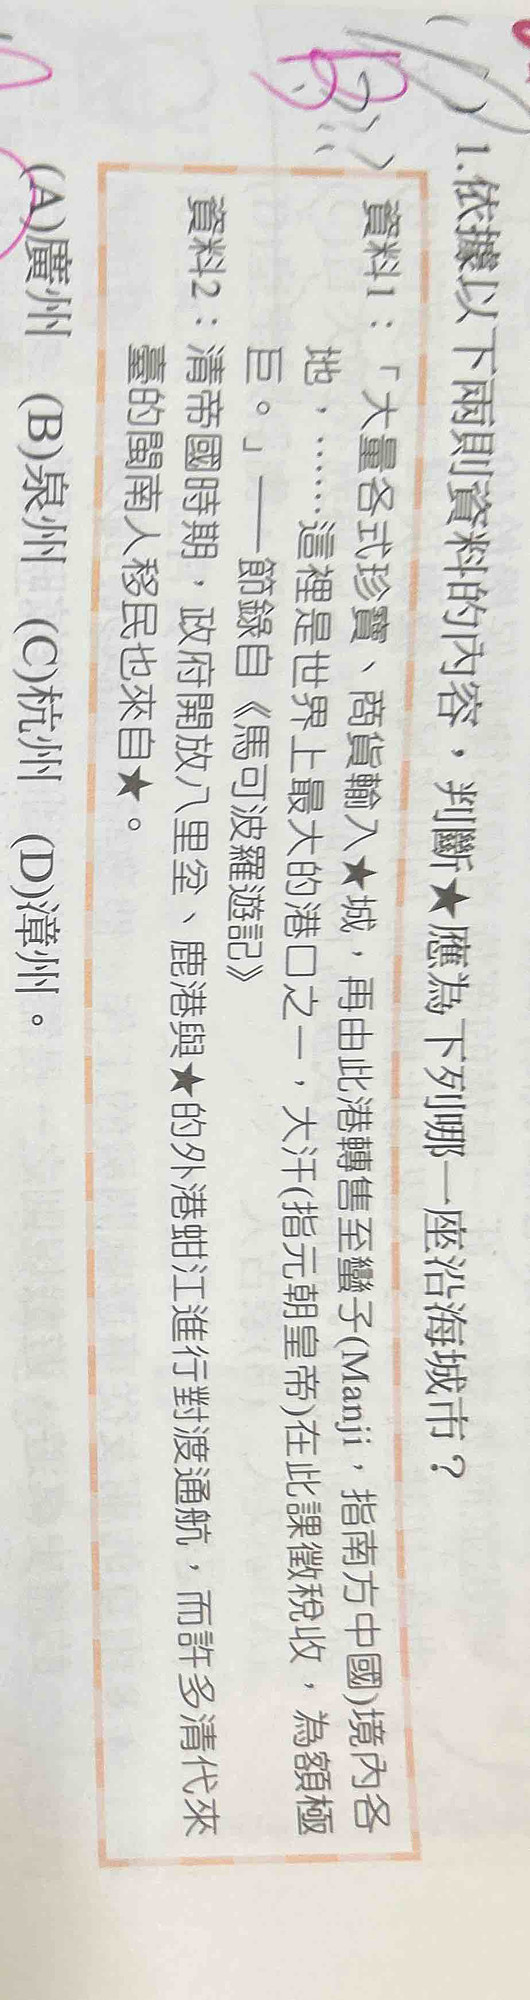 ( ) 1.依據以下兩則資料的內容，判斷★應為下列哪一座沿海城市？
B
資料1：「大量各式珍寶、商貨輸入★城，再由此港轉售至蠻子(Manji，指南方中國)境內各
地，……這裡是世界上最大的港口之一，大汗(指元朝皇帝)在此課徵稅收，為額極
巨。」——節錄自《馬可波羅遊記》
資料2：清帝國時期，政府開放八里坌、鹿港與★的外港蚶江進行對渡通航，而許多清代來
臺的閩南人移民也來自★。
(A)廣州 (B)泉州 (C)杭州 (D)漳州。